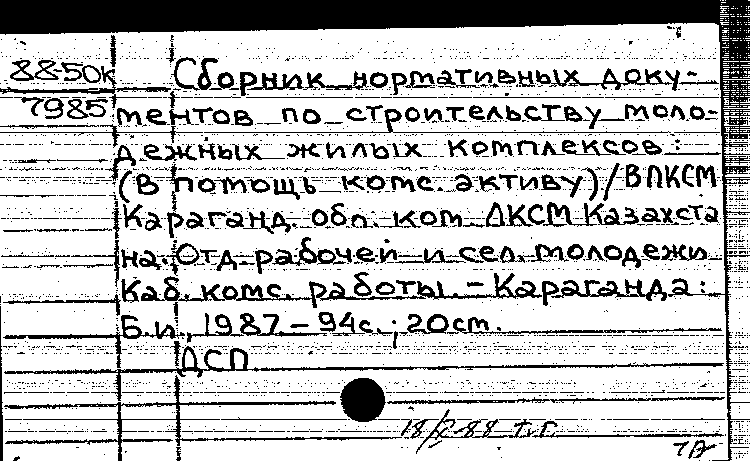 88-50к Сборник нормативных доку-
7985 ментов по строительству моло-
дежных жилых комплексов:
(В помощь комс. активу)/ВЛКСМ
Караганд. обл. ком. ЛКСМ Казахста
на. Отд. рабочей и сел. молодежи
Каб. комс. работы. - Караганда:
Б.и., 1987. - 94с.; 20см.
ДСП